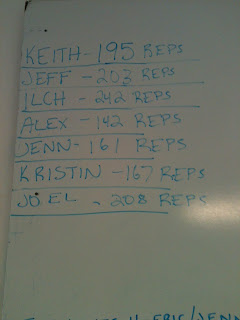 KEITH - 195 REPS
JEFF - 203 REPS
ILCH - 242 REPS
ALEX - 142 REPS
JENN - 161 REPS
KRISTIN - 167 REPS
JOEL - 208 REPS
ERIC/JENN